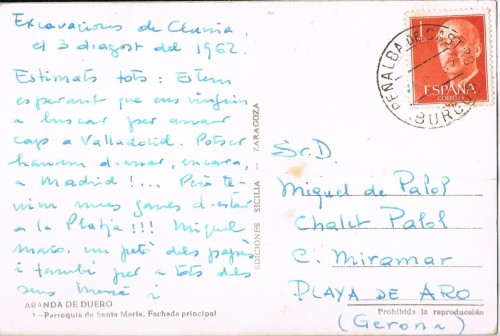 Excavacions de Clunia,
el 3 d'agost del 1962.
Estimats tots: Estem
esperant que ens vinguin
a buscar per anar
cap a Valladolid. Potser
haurem d'anar, encara,
a Madrid!... Però te-
nim més ganes d'estar
a la Platja!!! Miquel
maco. un petó dels papàs
i també per a tots dels
seus
ARANDA DE DUERO
1 – Parroquia de Santa María. Fachada principal
EDICIONES SICILIA – ZARAGOZA
ESPAÑA
CORREOS
PEÑALBA DE CASTRO
BURGOS
Sr. D.
Miguel de Palol
Chalet Palol
C. Miramar
PLAYA DE ARO
(Gerona)
Prohibida la reproducción